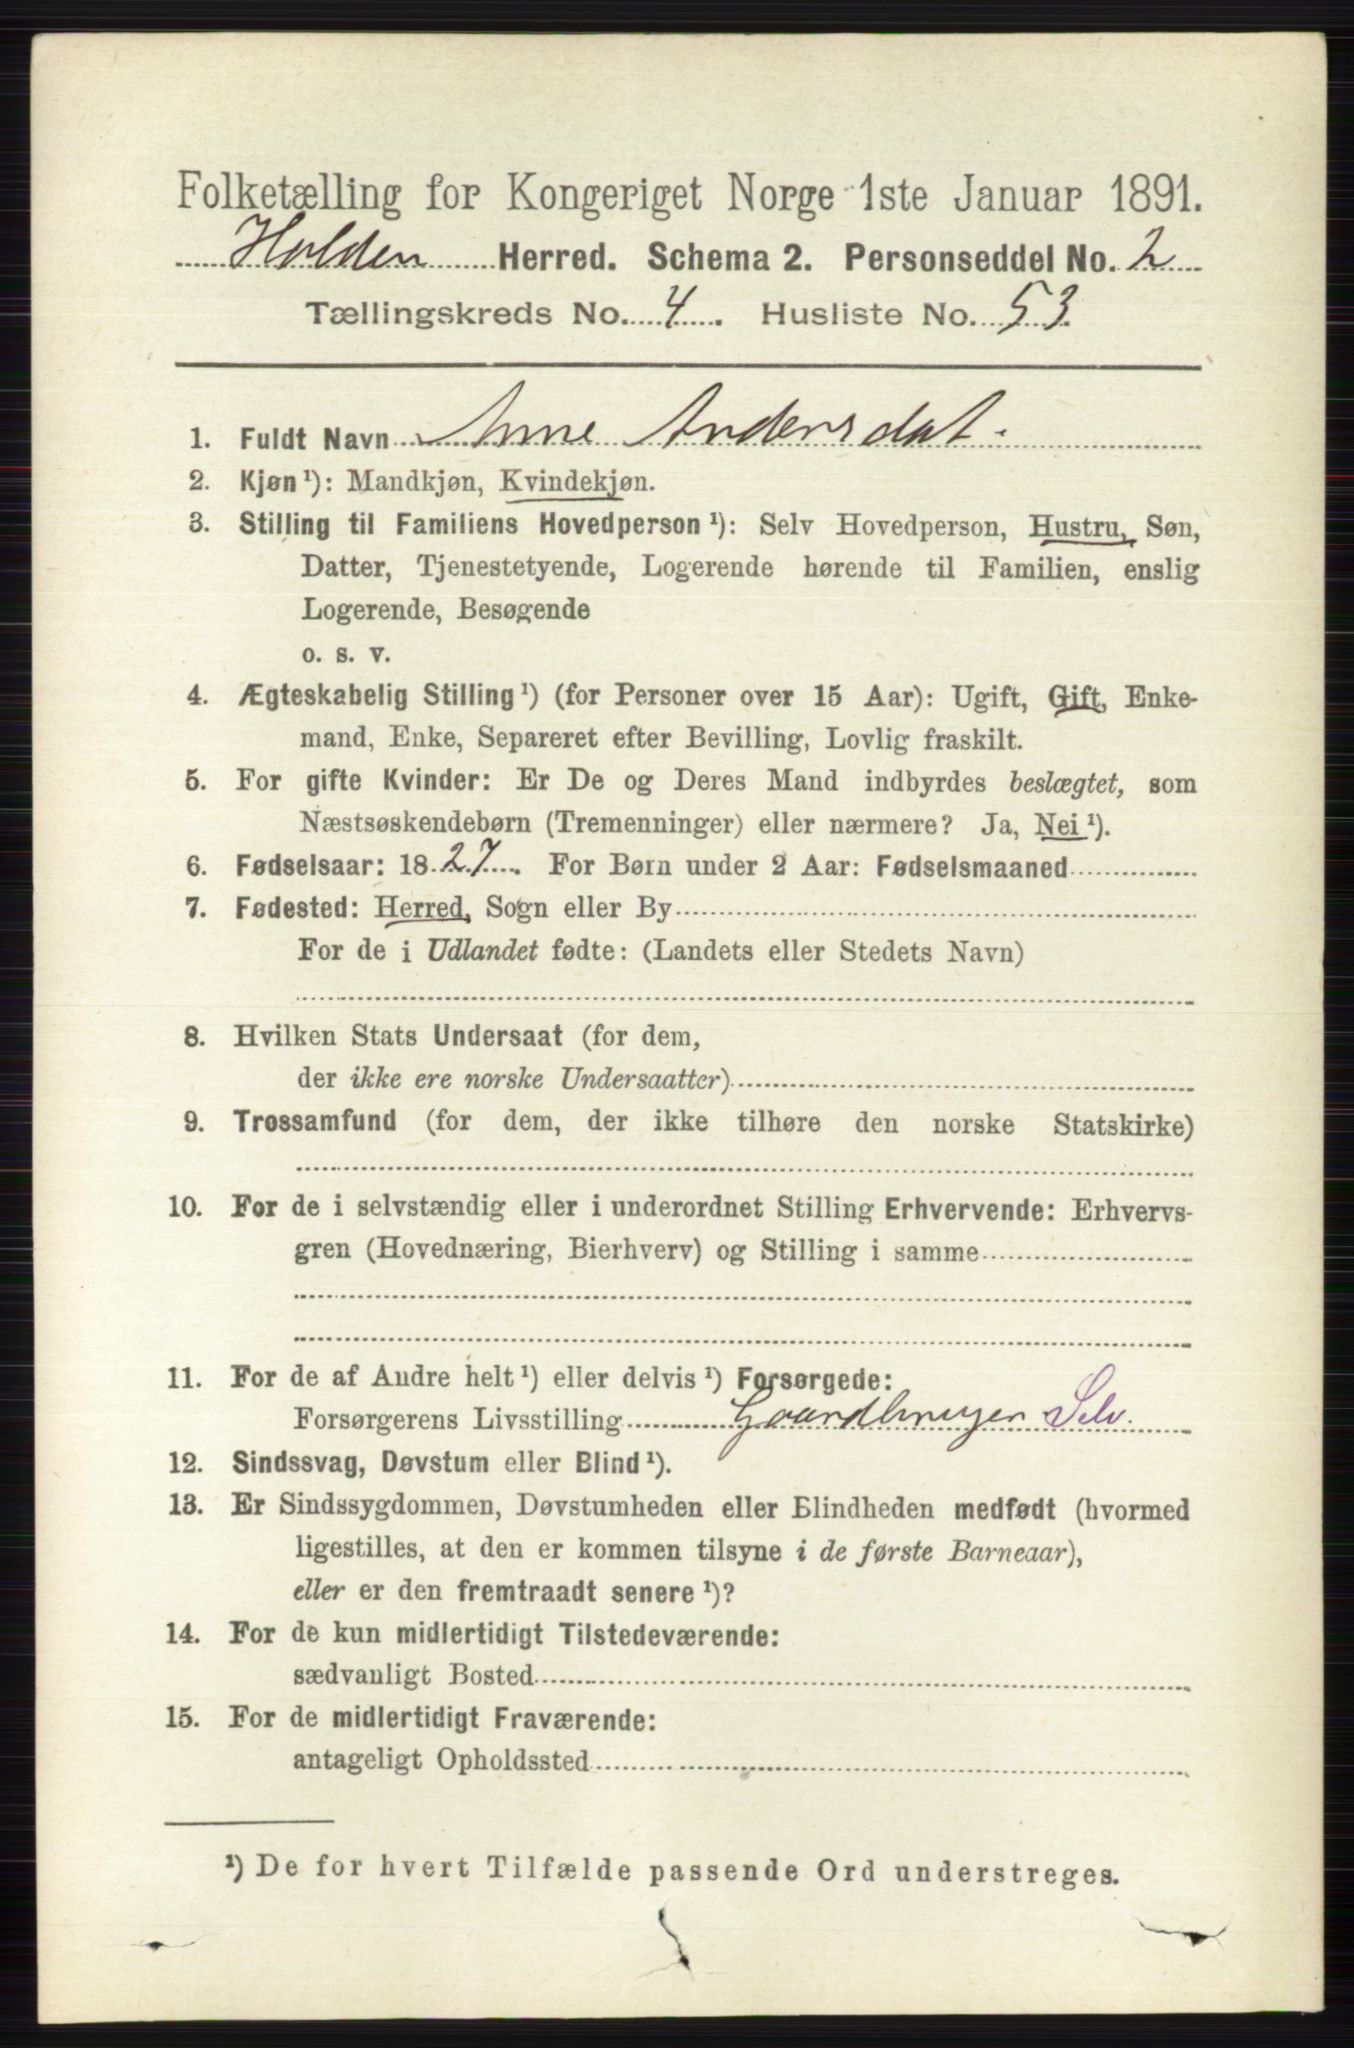 Folketælling for Kongeriget Norge 1ste Januar 1891.
Holden Herred. Schema 2. Personseddel No. 2
Tællingskreds No. 4. Husliste No. 53.
1. Fuldt Navn Anne Andersdat.
2. Kjøn ¹): Mandkjøn, Kvindekjøn.
3. Stilling til Familiens Hovedperson ¹): Selv Hovedperson, Hustru, Søn,
Datter, Tjenestetyende, Logerende hørende til Familien, enslig
Logerende, Besøgende
o. s. v.
4. Ægteskabelig Stilling ¹) (for Personer over 15 Aar): Ugift, Gift, Enke-
mand, Enke, Separeret efter Bevilling, Lovlig fraskilt.
5. For gifte Kvinder: Er De og Deres Mand indbyrdes beslægtet, som
Næstsøskendebørn (Tremenninger) eller nærmere? Ja, Nei ¹).
6. Fødselsaar: 1827. For Børn under 2 Aar: Fødselsmaaned
7. Fødested: Herred, Sogn eller By
For de i Udlandet fødte: (Landets eller Stedets Navn)
8. Hvilken Stats Undersaat (for dem,
der ikke ere norske Undersaatter)
9. Trossamfund (for dem, der ikke tilhøre den norske Statskirke)
10. For de i selvstændig eller i underordnet Stilling Erhvervende: Erhvervs-
gren (Hovednæring, Bierhverv) og Stilling i samme
11. For de af Andre helt ¹) eller delvis ¹) Forsørgede:
Forsørgerens Livsstilling Gaardbruger Selv.
12. Sindssvag, Døvstum eller Blind ¹).
13. Er Sindssygdommen, Døvstumheden eller Blindheden medfødt (hvormed
ligestilles, at den er kommen tilsyne i de første Barneaar),
eller er den fremtraadt senere ¹)?
14. For de kun midlertidigt Tilstedeværende:
sædvanligt Bosted
15. For de midlertidigt Fraværende:
antageligt Opholdssted
¹) De for hvert Tilfælde passende Ord understreges.